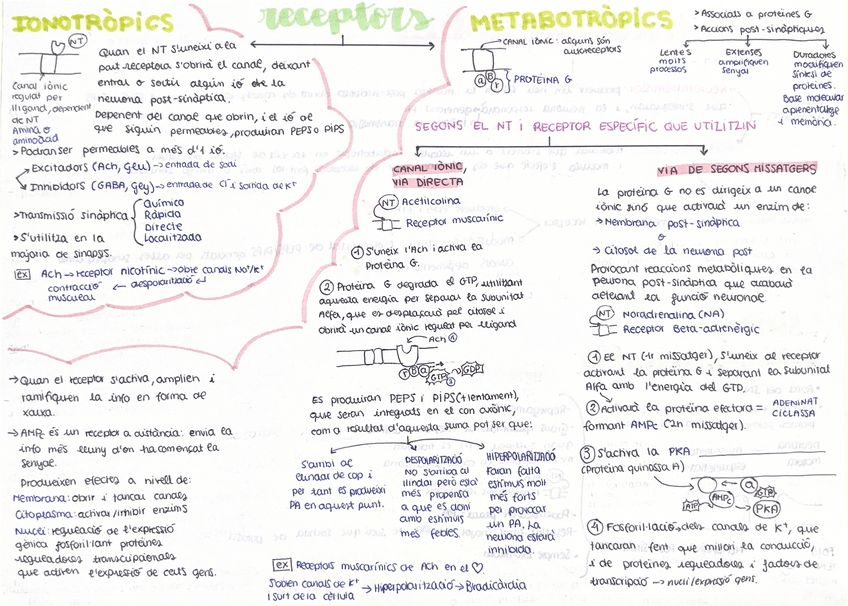 receptors
IONOTRÒPICS
NT
Canal iònic
regulat per
lligand, dependent
de NT
Amina o
aminoàcid
Quan el NT s'uneix a la
part receptora s'obrirà el canal, deixant
entrar o sortir algún ió de la
neurona post-sinàptica.
Depenent del canal que obrin, i el ió al
que siguin permeables, produiran PEPS o PIPS
>Podran ser permeables a més d'1 ió.
Excitadors (Ach, Glu) → entrada de sodi
Inhibidors (GABA, Gly) → entrada de Cl⁻ i sortida de K⁺
>Transmissió sinàptica
Química
Ràpida
Directe
Localitzada
>S'utilitza en la
majoria de sinapsis.
ex Ach → receptor nicotínic → obre canals Na⁺/K⁺
contracció ← despolarització
muscular
→ Quan el receptor s'activa, amplien i
ramifiquen la info en forma de
xarxa.
→ AMPc és un receptor a distància: envia la
info més lluny d'on ha començat la
senyal.
Produeixen efectes a nivell de:
Membrana: obrir i tancar canals
Citoplasma: activar/inhibir enzims
Nucli: regulació de l'expressió
gènica fosforil·lant proteïnes
reguladores transcripcionals
que activen l'expressió de certs gens.
METABOTRÒPICS
>Associats a proteïnes G
>Accions post-sinàptiques
Lentes
molts
processos
Extenses
amplifiquen
senyal
Duradores
modifiquen
síntesi de
proteïnes.
Base molecular
aprenentatge
i memòria.
CANAL IÒNIC: alguns són
autoreceptors
α β γ
PROTEÏNA G
SEGONS EL NT I RECEPTOR ESPECÍFIC QUE UTILITZIN
CANAL IÒNIC,
VIA DIRECTA
NT Acetilcolina
Receptor muscarínic
① S'uneix l'Ach i activa la
Proteïna G.
② Proteïna G degrada el GTP, utilitzant
aquesta energia per separar la subunitat
Alfa, que es desplaçarà pel citosol i
obrirà un canal iònic regulat per lligand
Ach ①
γ β α
GTP → GDP
②
Es produiran PEPS i PIPS (+lentament),
que seran integrats en el con axònic,
com a resultat d'aquesta suma pot ser que:
S'arribi al
llindar de cop i
per tant es produeixi
PA en aquest punt.
DESPOLARITZACIÓ
No s'arriba al
llindar però està
més propensa
a que es doni
amb estímuls
més febles.
HIPERPOLARITZACIÓ
Faran falta
estímuls molt
més forts
per provocar
un PA. La
neurona estarà
inhibida.
ex Receptors muscarínics de Ach en el ♡.
S'obren canals de K⁺ → Hiperpolarització → Bradicàrdia
i surt de la cèl·lula
VIA DE SEGONS MISSATGERS
La proteïna G no es dirigeix a un canal
iònic sinó que activarà un enzim de:
→ Membrana post-sinàptica
o
→ Citosol de la neurona post
Provocant reaccions metabòliques en la
neurona post-sinàptica que acabarà
alterant la funció neuronal.
NT Noradrenalina (NA)
Receptor Beta-adrenèrgic
① El NT (1r missatger), s'uneix al receptor
activant la proteïna G i separant la subunitat
Alfa amb l'energia del GTP.
② Activarà la proteïna efectora = ADENINAT
CICLASSA
formant AMPc (2n missatger).
③ S'activa la PKA
(Proteïna quinassa A)
α
GTP
ATP → AMPc → PKA
④ Fosforil·lació dels canals de K⁺, que
tancaran fent que millori la conducció,
i de proteïnes reguladores i factors de
transcripció → nucli/expressió gens.